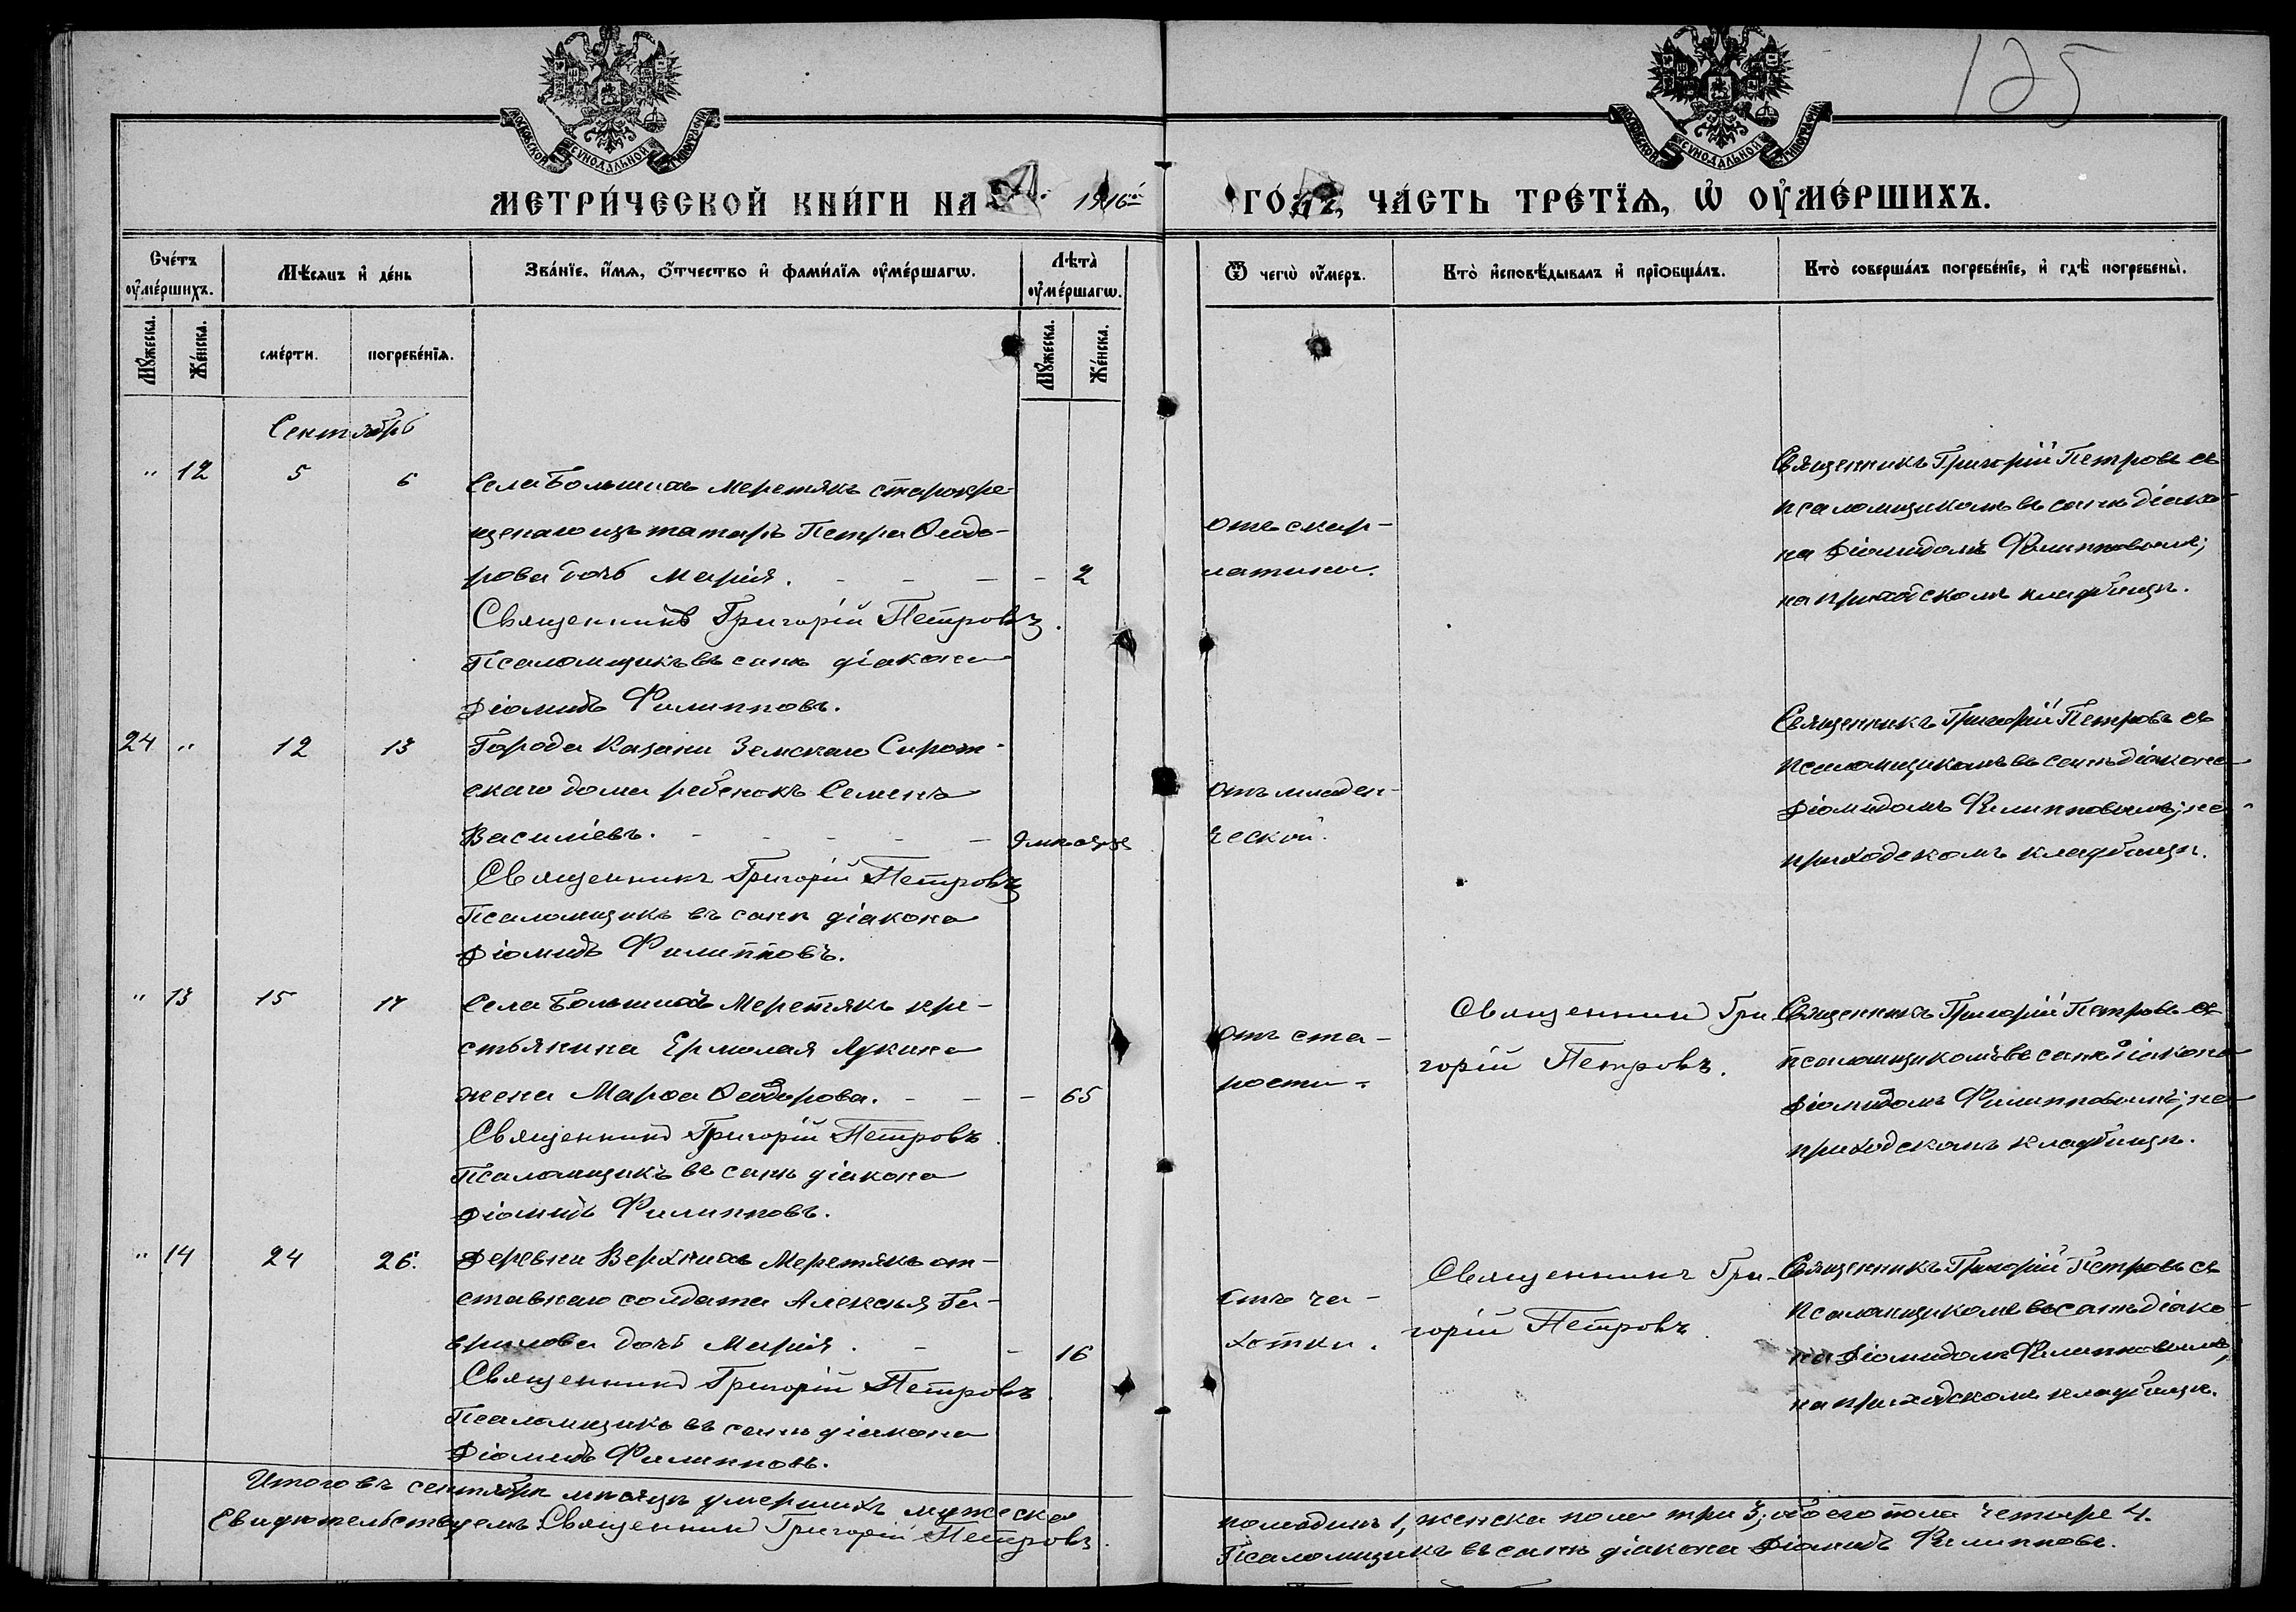 125
МОСКОВСКОЙ СѴНОДАЛЬНОЙ ТИПОГРАФІИ
МОСКОВСКОЙ СѴНОДАЛЬНОЙ ТИПОГРАФІИ
МЕТРИ́ЧЕСКОЙ КНИ́ГИ НА 1916й ГО́ДЪ, ЧА́СТЬ ТРЕ́ТЇѦ, Ѡ҆ ОУ҆МЕ́РШИХЪ.
Сче́тъ оу҆ме́ршихъ.
Мѣ́сѧцъ и҆ де́нь
Зва́нїе, и҆́мѧ, ѻ҆́тчество и҆ фами́лїѧ оу҆ме́ршагѡ.
Лѣ̑та оу҆ме́ршагѡ.
Ѿ чегѡ̀ оу҆́меръ.
Кто̀ и҆сповѣ́дывалъ и҆ прїѡбща́лъ.
Кто̀ соверша́лъ погребе́нїе, и҆ гдѣ̀ погребены̀.
Мꙋ́жеска.
Же́нска.
сме́рти.
погребе́нїѧ.
Мꙋ́жеска.
Же́нска.
Сентябрь
" 12 5 6
Села Большихъ Меретякъ старокре-
щенаго изъ татаръ Петра Ѳеодо-
рова дочь Марія. - - - - 2
Священникъ Григорій Петровъ.
Псаломщикъ въ санѣ діакона
Діомидъ Филипповъ.
отъ скар-
латины.
Священникъ Григорій Петровъ съ
псаломщикомъ въ санѣ діако-
на Діомидомъ Филипповымъ;
на приходскомъ кладбищѣ.
24 " 12 13
Города Казани Земскаго Сирот-
скаго дома ребенокъ Семенъ
Василіевъ. - - - - - 9 мѣсяцевъ
Священникъ Григорій Петровъ
Псаломщикъ въ санѣ діакона
Діомидъ Филипповъ.
отъ младен-
ческой.
Священникъ Григорій Петровъ съ
псаломщикомъ въ санѣ діакона
Діомидомъ Филипповымъ; на
приходскомъ кладбищѣ.
" 13 15 17
Села Большихъ Меретякъ кре-
стьянина Ермолая Лукина
жена Марѳа Ѳеодорова. - - - 65
Священникъ Григорій Петровъ.
Псаломщикъ въ санѣ діакона
Діомидъ Филипповъ.
отъ ста-
рости.
Священникъ Гри-
горій Петровъ.
Священникъ Григорій Петровъ съ
псаломщикомъ въ санѣ діакона
Діомидомъ Филипповымъ; на
приходскомъ кладбищѣ.
" 14 24 26.
Деревни Верхнихъ Меретякъ от-
ставнаго солдата Алексѣя Га-
врилова дочь Марія. - - 16
Священникъ Григорій Петровъ
Псаломщикъ въ санѣ діакона
Діомидъ Филипповъ.
отъ ча-
хотки.
Священникъ Гри-
горій Петровъ.
Священникъ Григорій Петровъ съ
псаломщикомъ въ санѣ діако-
на Діомидомъ Филипповымъ,
на приходскомъ кладбищѣ.
Итого въ сентябрѣ мѣсяцѣ умершихъ мужеска пола одинъ 1, женска пола три 3; обоего пола четыре 4.
Свидѣтельствуемъ Священникъ Григорій Петровъ. Псаломщикъ въ санѣ діакона Діомидъ Филипповъ.